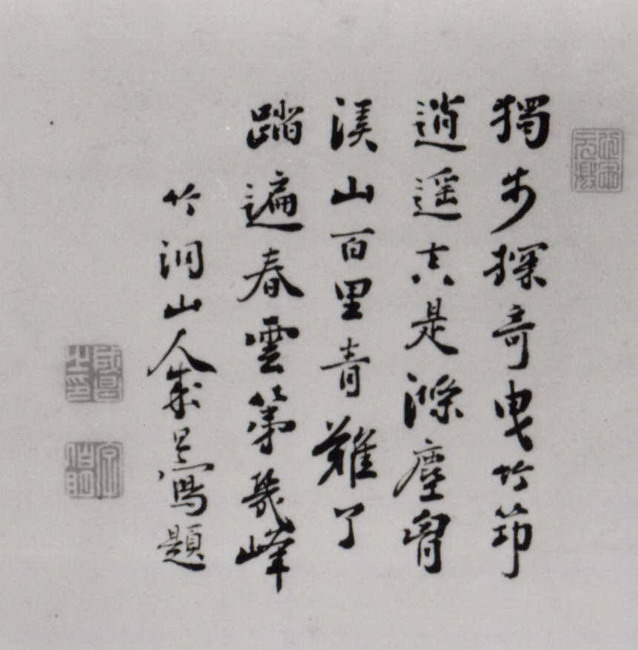 獨步探奇曳竹笻
逍遥真是滌塵胷
溪山百里青難了
踏遍春雲第幾峰
竹洞山人成寫題